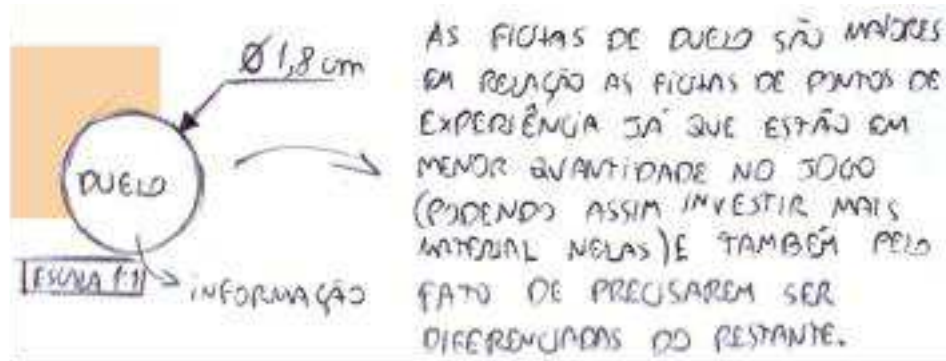 Ø 1,8 cm
DUELO
ESCALA 1:1
INFORMAÇÃO
AS FICHAS DE DUELO SÃO MAIORES
EM RELAÇÃO AS FICHAS DE PONTOS DE
EXPERIÊNCIA JÁ QUE ESTÃO EM
MENOR QUANTIDADE NO JOGO
(PODENDO ASSIM INVESTIR MAIS
MATERIAL NELAS) E TAMBÉM PELO
FATO DE PRECISAREM SER
DIFERENCIADAS DO RESTANTE.